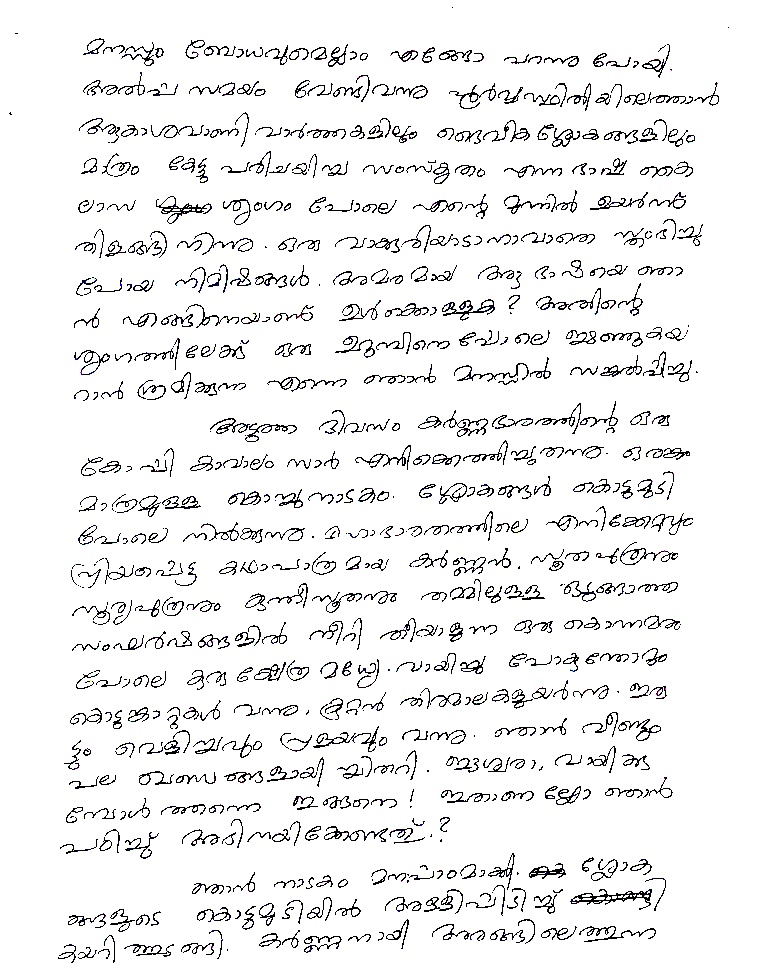 മനസ്സും ബോധവുമെല്ലാം എങ്ങോ പറന്നു പോയി.
അൽപ സമയം വേണ്ടിവന്നു പൂർവ്വസ്ഥിതിയിലെത്താൻ
ആകാശവാണി വാർത്തകളിലും വൈദിക ശ്ലോകങ്ങളിലും
മാത്രം കേട്ടു പരിചയിച്ച സംസ്കൃതം എന്ന ഭാഷ കൈ
ലാസ ശൃംഗം പോലെ എന്റെ മുന്നിൽ ഉയർന്ന്
തിളങ്ങി നിന്നു. ഒരു വാക്കുരിയാടാനാവാതെ സ്തംഭിച്ചു
പോയ നിമിഷങ്ങൾ. അമരമായ ആ ഭാഷയെ ഞാ
ൻ എങ്ങിനെയാണ് ഉൾക്കൊള്ളുക? അതിന്റെ
ശൃംഗത്തിലേക്ക് ഒരു ഉറുമ്പിനെ പോലെ ഇഴഞ്ഞുകയ
റാൻ ശ്രമിക്കുന്ന എന്നെ ഞാൻ മനസ്സിൽ സങ്കൽപിച്ചു.
അടുത്ത ദിവസം കർണ്ണഭാരത്തിന്റെ ഒരു
കോപ്പി കാവാലം സാർ എനിക്കെത്തിച്ചുതന്നു. ഒരങ്കം
മാത്രമുള്ള കൊച്ചുനാടകം. ശ്ലോകങ്ങൾ കൊടുമുടി
പോലെ നിൽക്കുന്നു. മഹാഭാരതത്തിലെ എനിക്കേറ്റവും
പ്രിയപ്പെട്ട കഥാപാത്രമായ കർണ്ണൻ. സൂതപുത്രനും
സൂര്യപുത്രനും കുന്തീസുതനും തമ്മിലുള്ള ഒടുങ്ങാത്ത
സംഘർഷങ്ങളിൽ നീറി തീയാളുന്ന ഒരു കൊന്നമരം
പോലെ കുരുക്ഷേത്ര മദ്ധ്യേ. വായിച്ചു പോകുന്തോറും
കൊടുങ്കാറ്റുകൾ വന്നു. കൂറ്റൻ തിരമാലകളുയർന്നു. ഇരു
ട്ടും വെളിച്ചവും പ്രളയവും വന്നു. ഞാൻ വീണ്ടും
പല ഖണ്ഡങ്ങളായി ചിതറി. ഈശ്വരാ, വായിക്കു
മ്പോൾ ത്തന്നെ ഇങ്ങനെ! ഇതാണല്ലോ ഞാൻ
പഠിച്ച് അഭിനയിക്കേണ്ടത്.?
ഞാൻ നാടകം മനഃപാഠമാക്കി. ശ്ലോക
ങ്ങളുടെ കൊടുമുടിയിൽ അള്ളിപ്പിടിച്ച്
കയറി തുടങ്ങി. കർണ്ണനായി അരങ്ങിലെത്തുന്ന